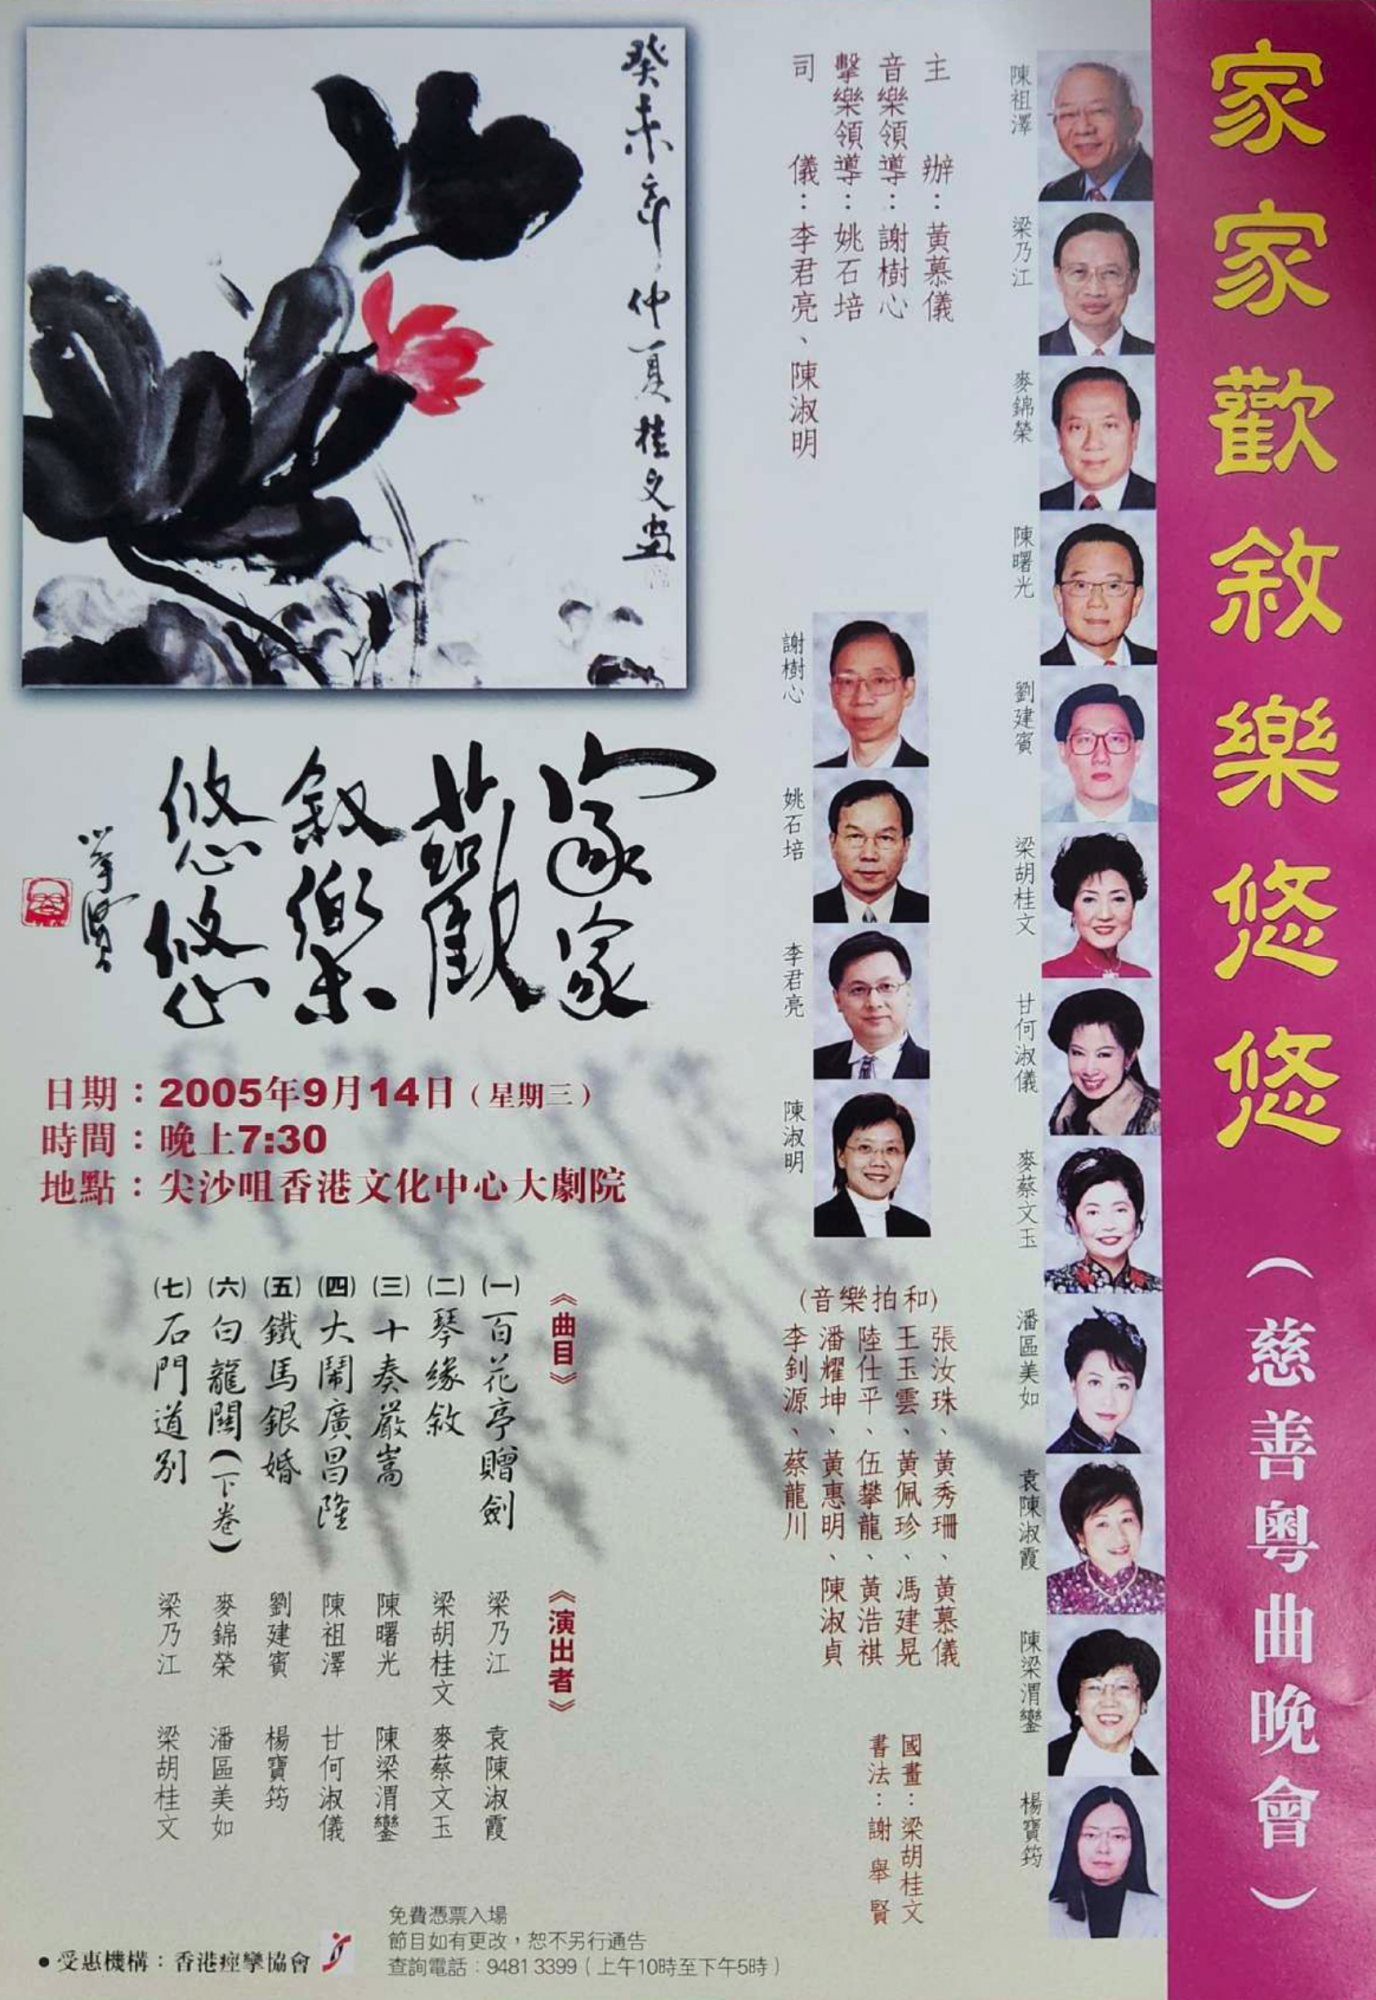 家家歡敘樂悠悠(慈善粵曲晚會)
陳祖澤
梁乃江
麥錦榮
陳曙光
劉建賓
梁胡桂文
甘何淑儀
麥蔡文玉
潘區美如
袁陳淑霞
陳梁渭鑾
楊寶筠
主辦：黃慕儀
音樂領導：謝樹心
擊樂領導：姚石培
司儀：李君亮、陳淑明
謝樹心
姚石培
李君亮
陳淑明
(音樂拍和)
張汝珠、黃秀珊、黃慕儀
王玉雲、黃佩珍、馮建晃
陸仕平、伍攀龍、黃浩祺
潘耀坤、黃惠明、陳淑貞
李釗源、蔡龍川
國畫：梁胡桂文
書法：謝舉賢
癸未年仲夏桂文畫
家家
歡
敘樂
悠悠
舉賢
日期：2005年9月14日(星期三)
時間：晚上7:30
地點：尖沙咀香港文化中心大劇院
《曲目》 《演出者》
(一)百花亭贈劍 梁乃江 袁陳淑霞
(二)琴緣敘 梁胡桂文 麥蔡文玉
(三)十奏嚴嵩 陳曙光 陳梁渭鑾
(四)大鬧廣昌隆 陳祖澤 甘何淑儀
(五)鐵馬銀婚 劉建賓 楊寶筠
(六)白龍關(下卷) 麥錦榮 潘區美如
(七)石門道別 梁乃江 梁胡桂文
•受惠機構：香港痙攣協會
免費憑票入場
節目如有更改，恕不另行通告
查詢電話：9481 3399(上午10時至下午5時)